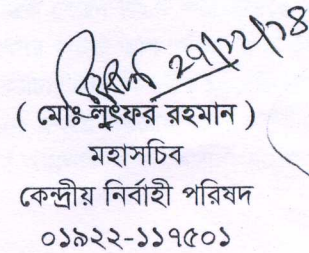 ২৭/১২/১৪
( মোঃ লুৎফর রহমান )
মহাসচিব
কেন্দ্রীয় নির্বাহী পরিষদ
০১৯২২-১১৭৫০১